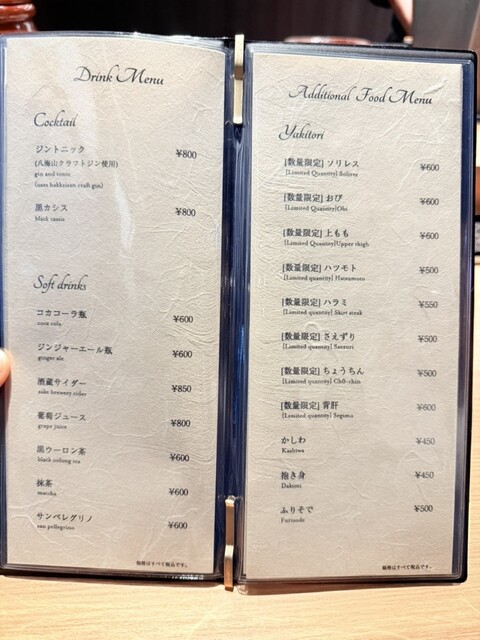 Drink Menu
Cocktail
ジントニック ¥800
(八海山クラフトジン使用)
gin and tonic
(uses hakkaisan craft gin)
黒カシス ¥800
black cassis
Soft drinks
コカコーラ瓶 ¥600
coca cola
ジンジャーエール瓶 ¥600
ginger ale
酒蔵サイダー ¥850
sake brewery cider
葡萄ジュース ¥800
grape juice
黒ウーロン茶 ¥600
black oolong tea
抹茶 ¥600
maccha
サンペレグリノ ¥600
san pellegrino
価格はすべて税込です。
Additional Food Menu
Yakitori
[数量限定] ソリレス ¥600
[Limited Quantity] Solires
[数量限定] おび ¥600
[Limited Quantity]Obi
[数量限定] 上もも ¥600
[Limited Quantity]Upper thigh
[数量限定] ハツモト ¥500
[Limited quantity] Hatsumoto
[数量限定] ハラミ ¥550
[Limited quantity] Skirt steak
[数量限定] さえずり ¥500
[Limited quantity] Saezuri
[数量限定] ちょうちん ¥500
[Limited quantity] Chō-chin
[数量限定] 背肝 ¥600
[Limited quantity] Segimo
かしわ ¥450
Kashiwa
抱き身 ¥450
Dakimi
ふりそで ¥500
Furisode
価格はすべて税込です。